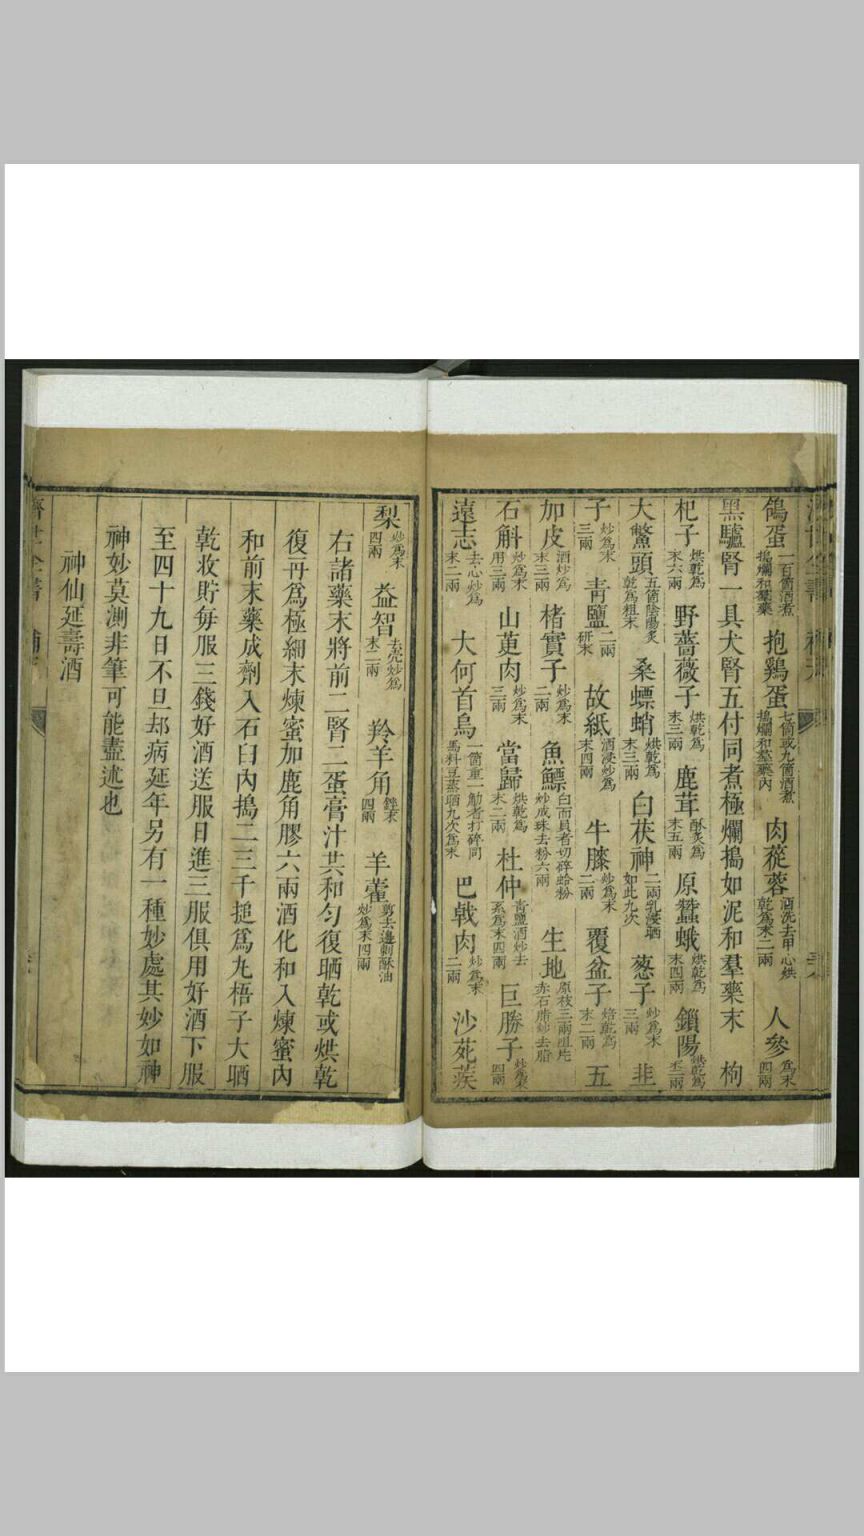 鴿蛋一百箇酒煮搗爛和羣藥 抱鷄蛋七箇或九箇酒煮搗爛和羣藥內 肉蓯蓉酒洗去甲心烘乾爲末二兩 人參爲末四兩
黑驢腎一具犬腎五付同煮極爛搗如泥和羣藥末 枸
杞子烘乾爲末六兩 野薔薇子烘乾爲末三兩 鹿茸酥炙爲末五兩 原蠶蛾烘乾爲末四兩 鎖陽烘乾爲末三兩
大鱉頭五箇陰陽炙乾爲粗末 桑螵蛸烘乾爲末三兩 白茯神二兩乳浸晒如此九次 葱子炒爲末三兩 韭
子炒爲末三兩 靑鹽二兩研末 故紙酒浸炒爲末四兩 牛膝炒爲末二兩 覆盆子焙乾爲末二兩 五
加皮酒炒爲末三兩 楮實子炒爲末二兩 魚鰾白而員者切碎蛤粉炒成珠去粉六兩 生地原枝三兩
石斛炒爲末用三兩 山萸肉炒爲末三兩 當歸烘乾爲末二兩 杜仲靑鹽酒炒去糸爲末四兩 巨勝子炒爲末四兩
遠志去心炒爲末二兩 大何首烏一箇重一觔者打碎同馬料豆蒸晒九次爲末 巴戟肉炒爲末二兩 沙苑蒺
梨炒爲末四兩 益智去壳炒爲末二兩 羚羊角銼末四兩 羊藿剪去邊刺酥油炒爲末四兩
右諸藥末將前二腎二蛋膏汁共和勻復晒乾或烘乾
復再爲極細末煉蜜加鹿角膠六兩酒化和入煉蜜內
和前末藥成劑入石臼內搗二三千搥爲丸梧子大晒
乾收貯每服三錢好酒送服日進三服俱用好酒下服
至四十九日不旦却病延年另有一種妙處其妙如神
神妙莫測非筆可能盡述也
神仙延壽酒
濟世全書